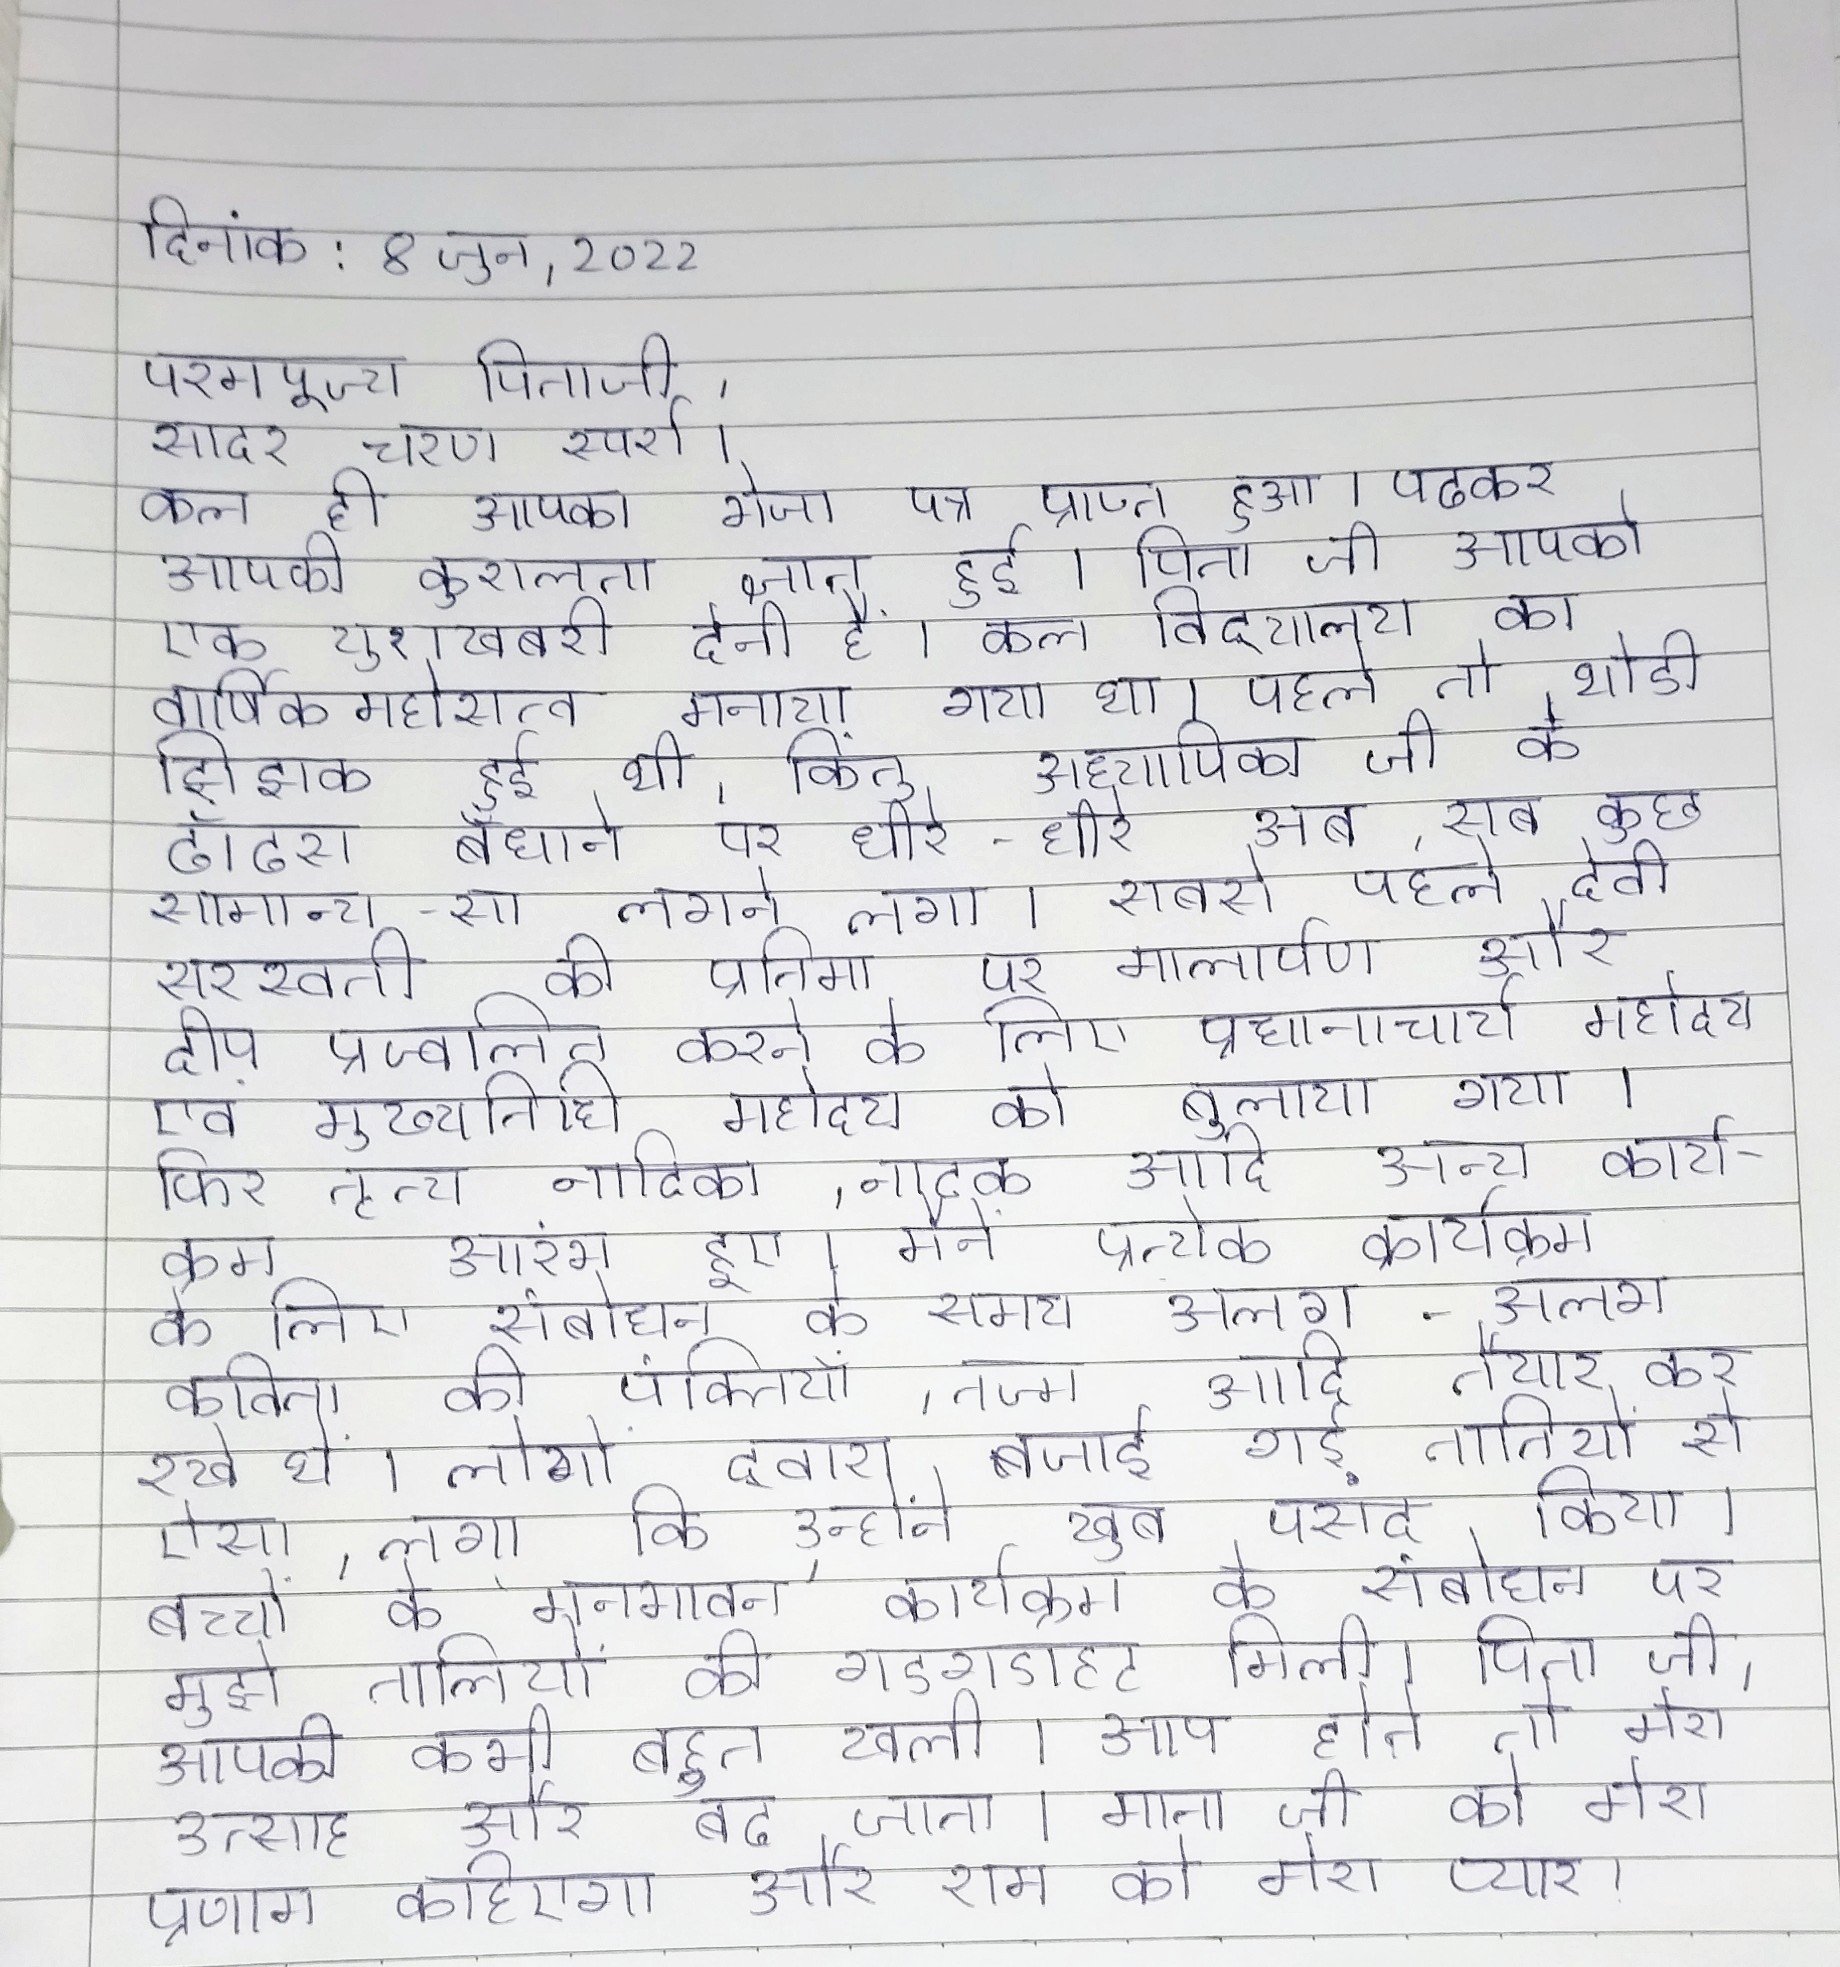 दिनांक : 8 जुन, 2022
परमपूज्य पिताजी,
सादर चरण स्पर्श।
कल ही आपका भेजा पत्र प्राप्त हुआ। पढकर
आपकी कुशलता ज्ञात हुई। पिता जी आपको
एक खुशखबरी देनी है। कल विद्यालय का
वार्षिक महोसत्व मनाया गया था। पहले तो थोडी
झिझक हुई थी, किंतु अध्यापिका जी के
ढाँढस बँधाने पर धीरे - धीरे अब सब कुछ
सामान्य -सा लगने लगा। सबसे पहले देवी
सरस्वती की प्रतिमा पर मालार्पण और
दीप प्रज्वलित करने के लिए प्रधानाचार्य महोदय
एवं मुख्यतिथि महोदय को बुलाया गया।
फिर नृत्य नाटिका, नाटक आदि अन्य कार्य-
क्रम आरंभ हुए। मैंने प्रत्येक कार्यक्रम
के लिए संबोधन के समय अलग - अलग
कविता की पंक्तियाँ, नज्म आदि तैयार कर
रखे थे। लोगों द्वारा बजाई गई तालियों से
ऐसा लगा कि उन्होंने खुब पसंद किया।
बच्चों के मनभावन कार्यक्रम के संबोधन पर
मुझे तालियों की गडगडाहट मिली। पिता जी,
आपकी कमी बहुत खली। आप होते तो मेरा
उत्साह और बढ जाता। माता जी को मेरा
प्रणाम कहिएगा और राम को मेरा प्यार।